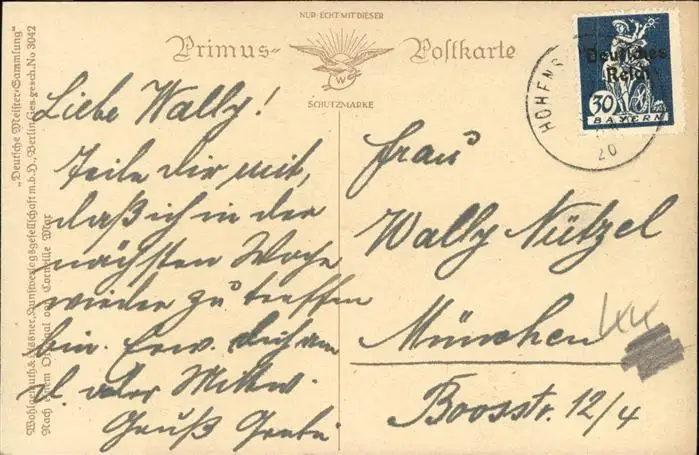 NUR ECHT MIT DIESER
Primus- Postkarte
W
SCHUTZMARKE
Deutsches
Reich
30
BAYERN
HOHENS
20
"Deutsche Meister-Sammlung"
Wohlgemuth & Lissner, Kunstverlagsgesellschaft m.b.H., Berlin. Ges. gesch. No 3042
Nach einem Original von Corneille Max
Liebe Wally!
Teile dir mit,
daß ich in der
nächsten Woche
wieder zu treffen
bin. Erw. dich am
D. oder Mittw.
Gruß Gretl
Frau
Wally Nützel
München
Boosstr. 12/4